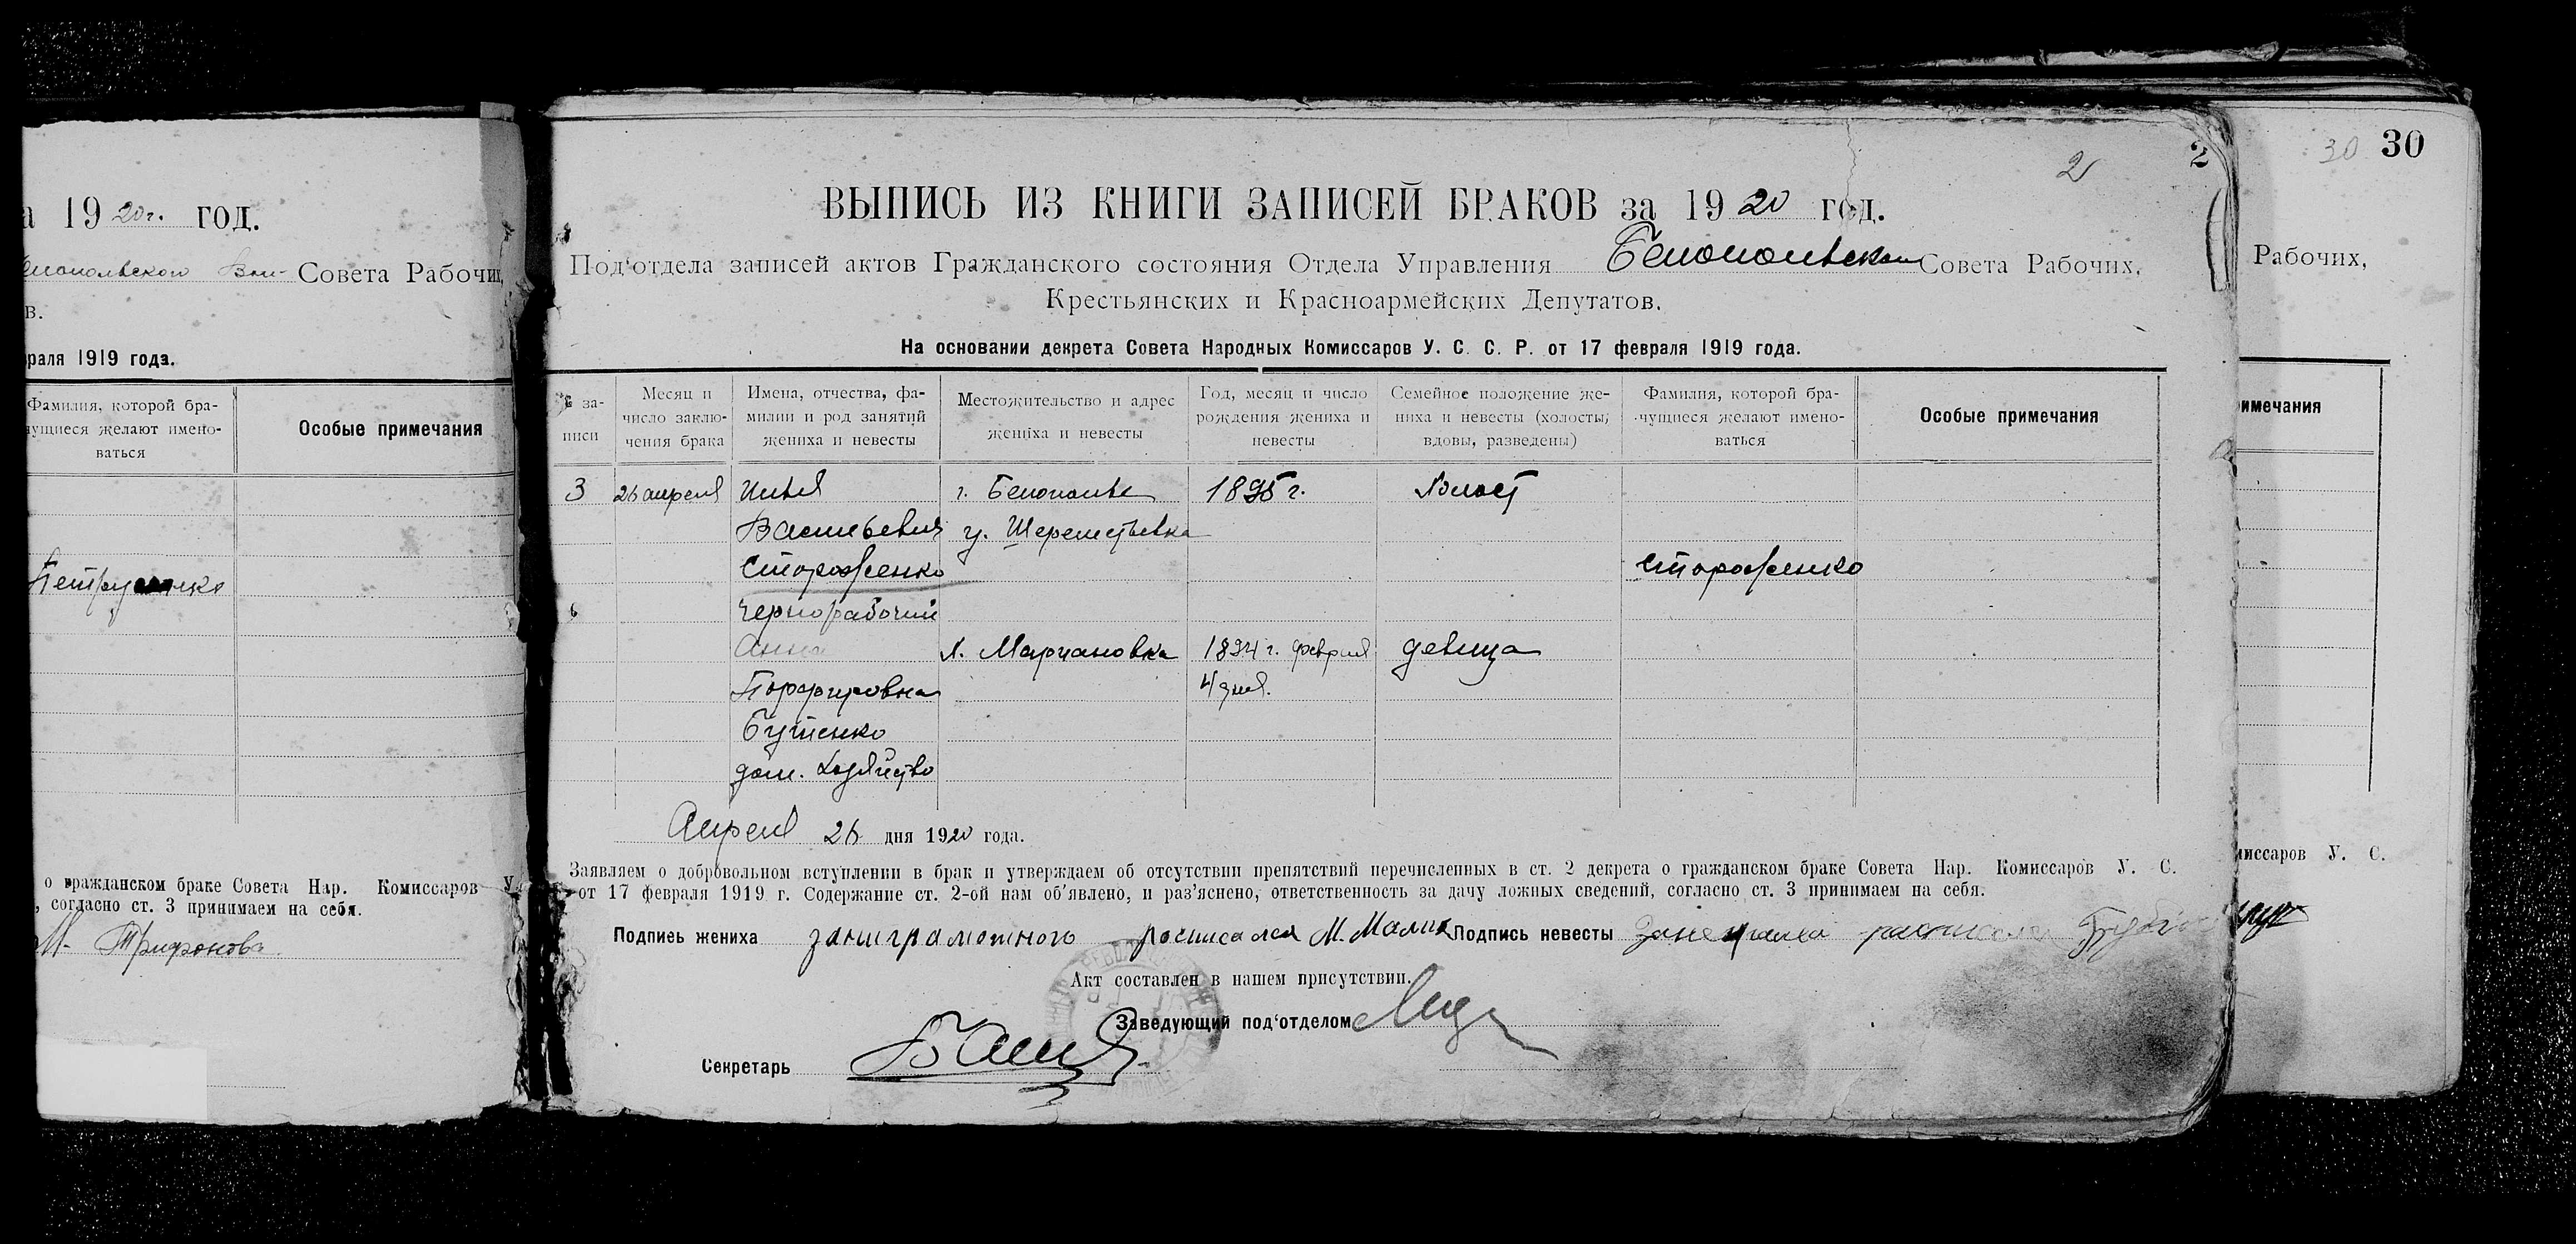 а 19 20г. год.
Совета Рабочих,
в.
враля 1919 года.
Фамилия, которой бра-
чущиеся желают имено-
ваться
Особые примечания
о гражданском браке Совета Нар. Комиссаров У.
, согласно ст. 3 принимаем на себя.
М. Трифонова
2
2
ВЫПИСЬ ИЗ КНИГИ ЗАПИСЕЙ БРАКОВ за 19 20 год.
Под'отдела записей актов Гражданского состояния Отдела Управления Белопольской Совета Рабочих,
Крестьянских и Красноармейских Депутатов.
На основании декрета Совета Народных Комиссаров У. С. С. Р. от 17 февраля 1919 года.
№ за-
писи
Месяц и
число заклю-
чения брака
Имена, отчества, фа-
милии и род занятий
жениха и невесты
Местожительство и адрес
жениха и невесты
Год, месяц и число
рождения жениха и
невесты
Семейное положение же-
ниха и невесты (холосты,
вдовы, разведены)
Фамилия, которой бра-
чущиеся желают имено-
ваться
Особые примечания
3 26 апреля Илья г. Белополье 1895 г. Холост
Васильевич у. Шереметьевка
Стороженко Стороженко
чернорабочий
Анна х. Марчановка 1894 г. февраля девица
Порфировна 4 дня.
Бутенко
дом. хозяйство
Апреля 26 дня 1920 года.
Заявляем о добровольном вступлении в брак и утверждаем об отсутствии препятствий перечисленных в ст. 2 декрета о гражданском браке Совета Нар. Комиссаров У. С.
от 17 февраля 1919 г. Содержание ст. 2-ой нам об'явлено, и раз'яснено, ответственность за дачу ложных сведений, согласно ст. 3 принимаем на себя.
Подпись жениха росписался М. Малик Подпись невесты
Акт составлен в нашем присутствии.
Заведующий под'отделом
Секретарь
30 30
Рабочих,
имечания
миссаров У. С.